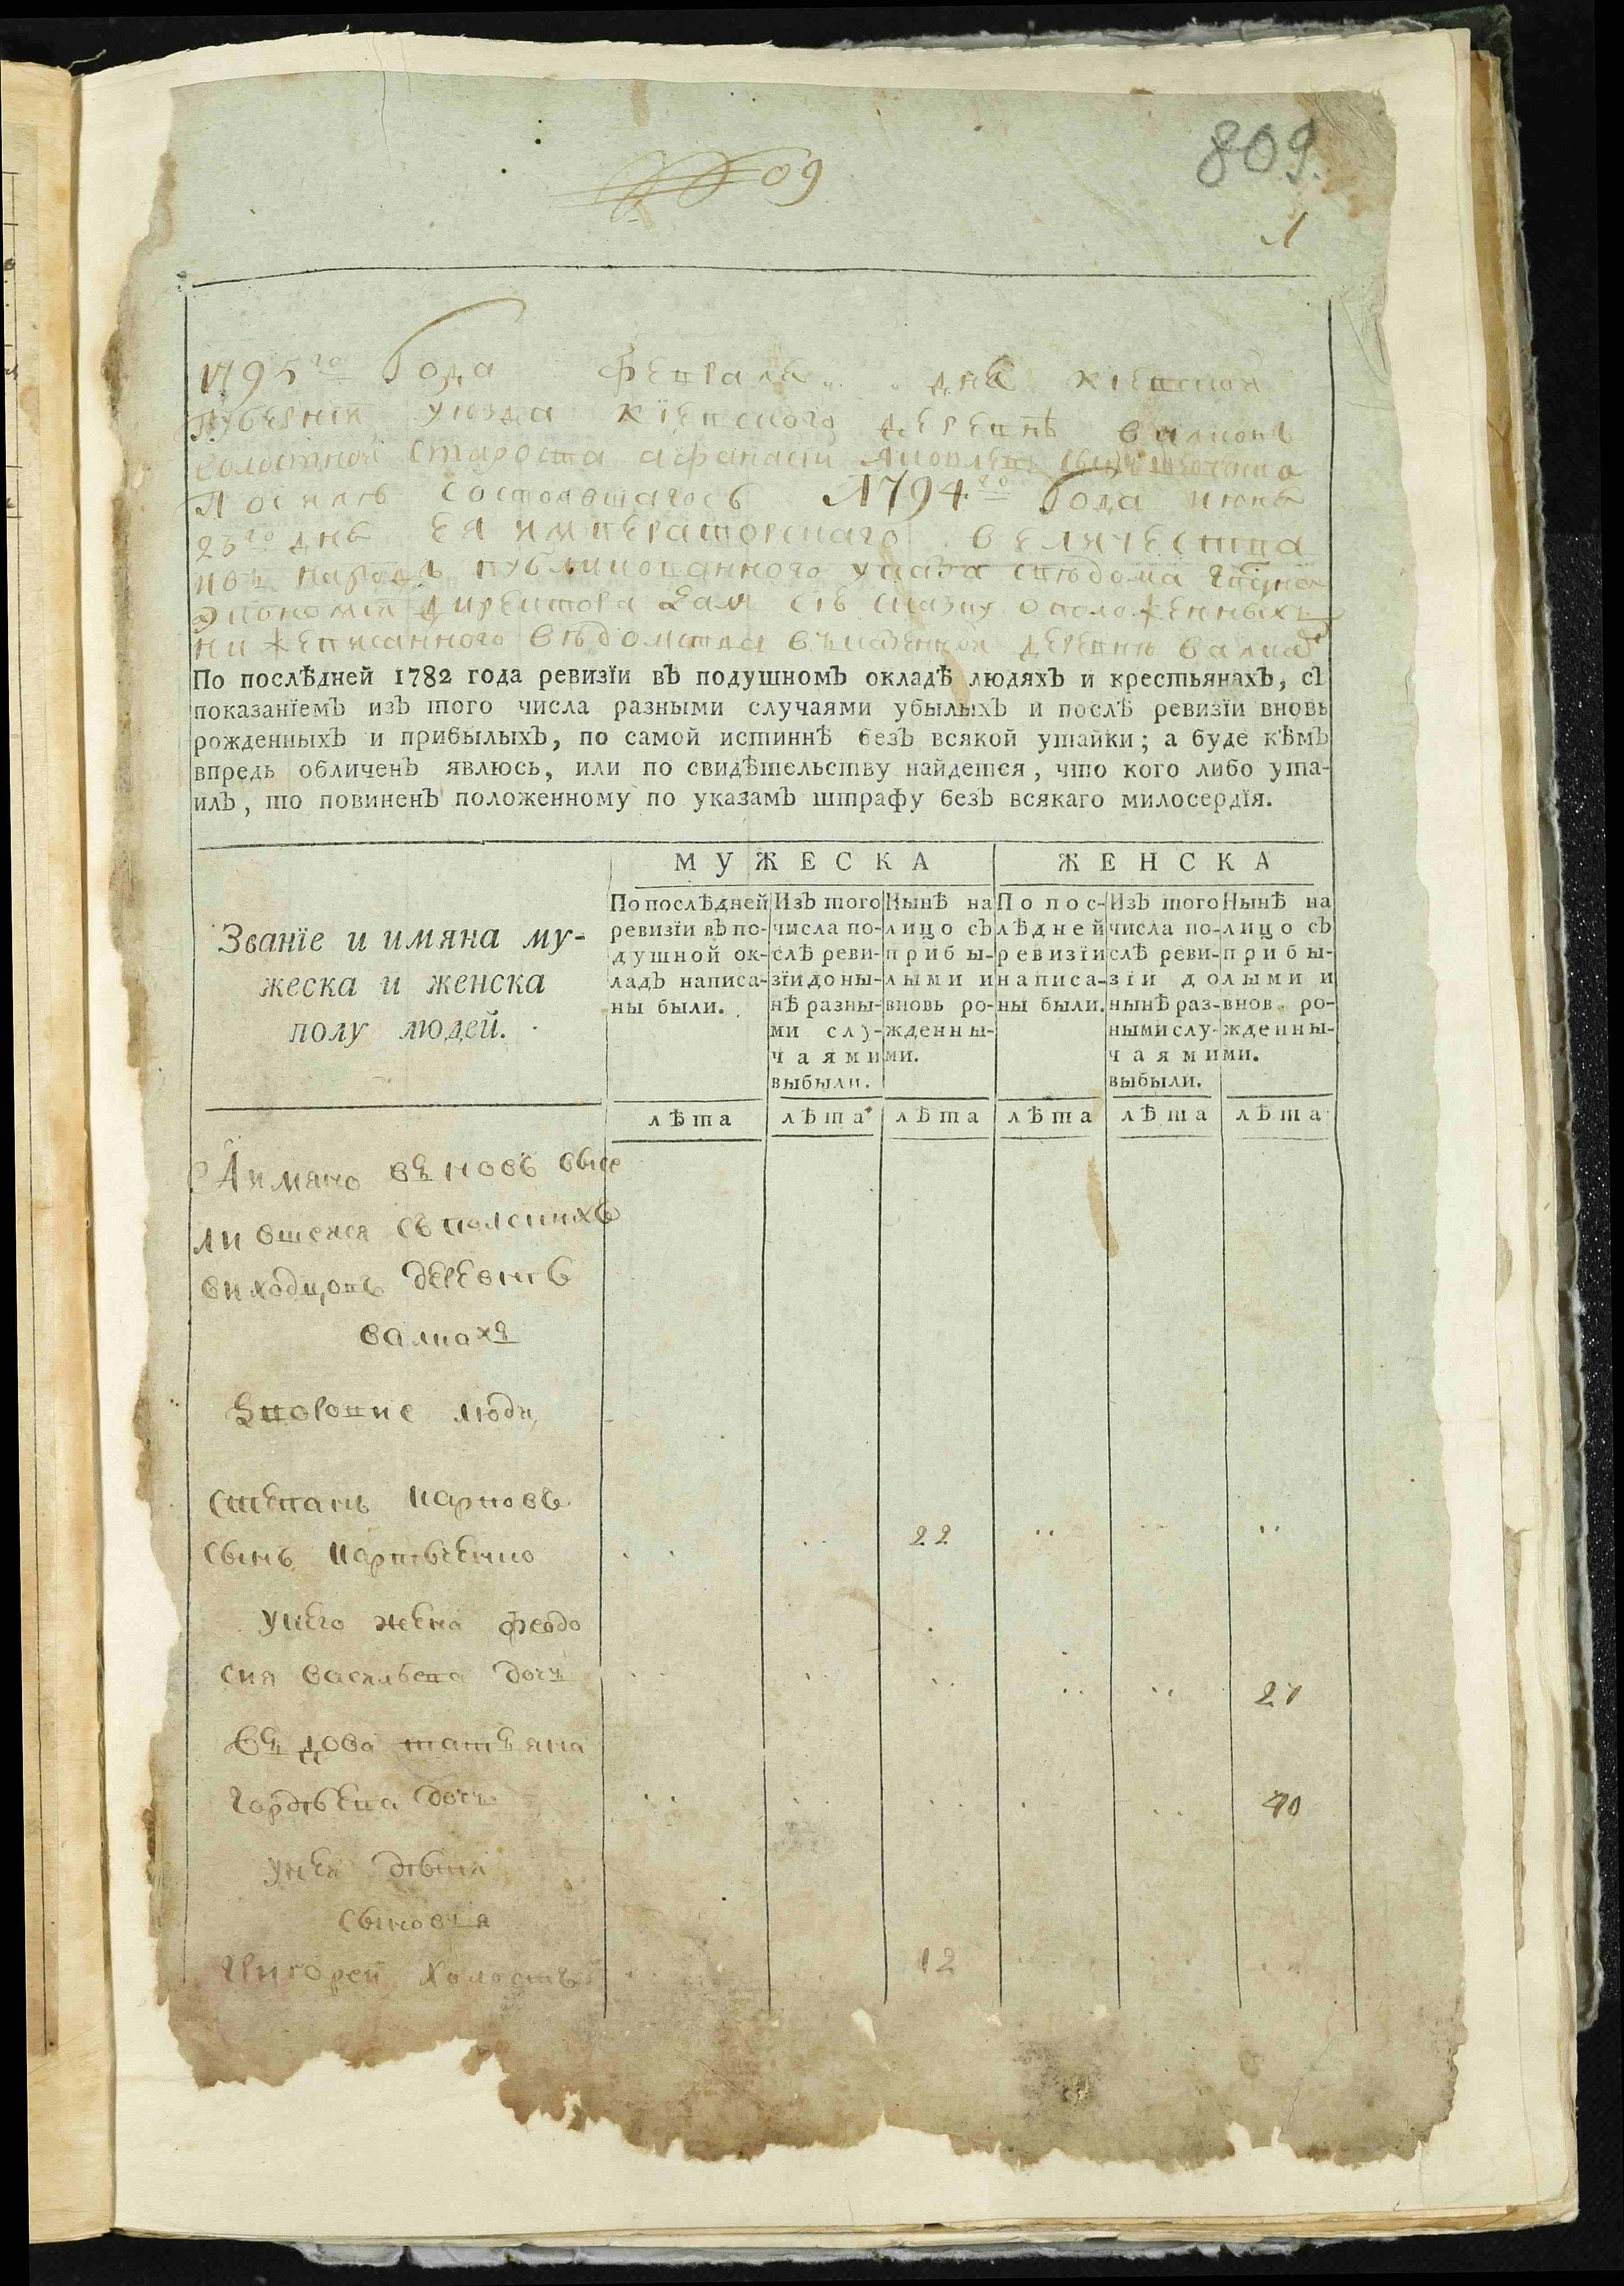 809
809.
1
1795го Года Февраля .. дня Кіевской
Губерніи уѣзда Кіевского деревнѣ Валковъ
волостной староста Афанасий Яковлевъ сынъ
По силѣ состоявшагось 1794го Года июня
23го дня ЕЯ ИМПЕРАТОРСКАГО ВЕЛИЧЕСТВА
и въ народъ публикованного указа съ вѣдома Гспдна
Економіи Директора дал сію сказку о положенныхъ
нижеписанного вѣдомства въ казенной деревнѣ
По послѣдней 1782 года ревизїи въ подушномъ окладѣ людяхъ и крестьянахъ, съ
показанїемъ изъ того числа разными случаями убылыхъ и послѣ ревизїи вновь
рожденныхъ и прибылыхъ, по самой истиннѣ безъ всякой утайки; а буде кѣмъ
впредь обличенъ явлюсь, или по свидѣтельству найдется, что кого либо ута-
илъ, то повиненъ положенному по указамъ штрафу безъ всякаго милосердїя.
МУЖЕСКА ЖЕНСКА
Званїе и имяна му-
жеска и женска
полу людей.
По послѣдней
ревизїи въ по-
душной ок-
ладъ написа-
ны были.
Изъ того
числа по-
слѣ реви-
зїи до ны-
нѣ разны-
ми слу-
чаями
выбыли.
Нынѣ на
лицо съ
прибы-
лыми и
вновь ро-
жденны-
ми.
По пос-
лѣдней
ревизїи
написа-
ны были.
Изъ того
числа по-
слѣ реви-
зїи до
нынѣ раз-
ными слу-
чаями
выбыли.
Нынѣ на
лицо съ
прибы-
лыми и
внов ро-
жденны-
ми.
лѣта лѣта лѣта лѣта лѣта лѣта
А имяно въ новь высе
лившеися съ полскихъ
виходцовъ деревнѣ
Валках
Здоровие люди
Степанъ Карповъ
сынъ Карпѣенко .. .. 22 .. .. ..
у него жена Феодо
сия Василева дочъ .. .. .. .. .. 21
въдова Татъяна
Гордѣева дочъ .. .. .. .. .. 40
у нея дѣти
сыновъя
Григорей холостъ .. .. 12 .. .. ..